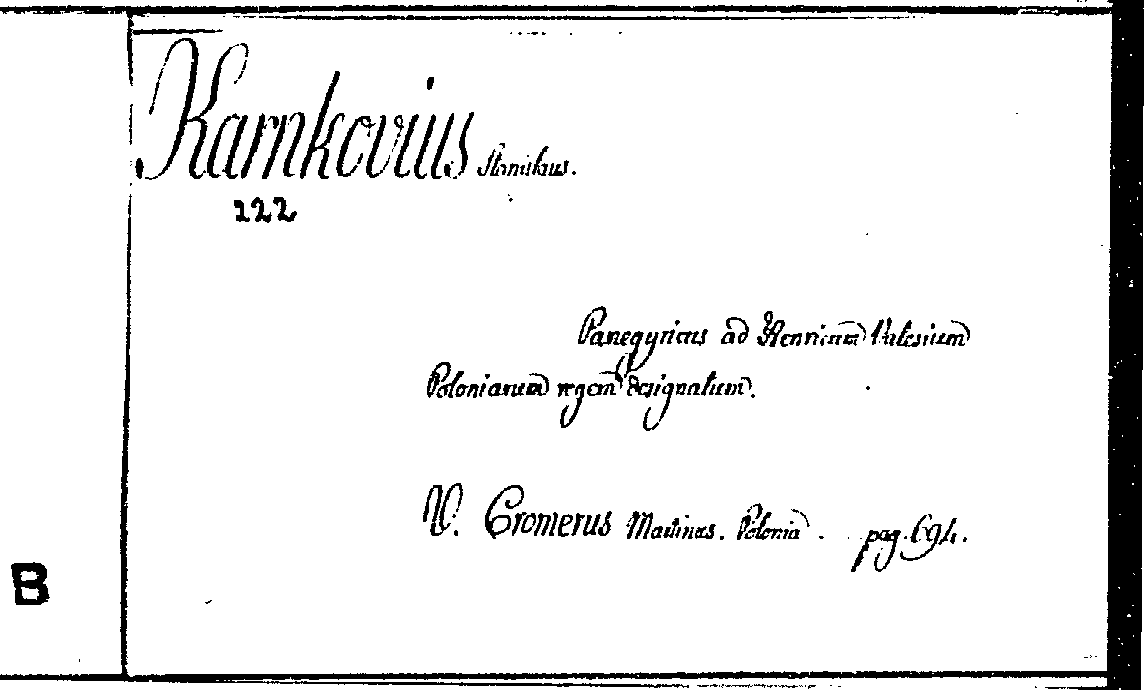 Karnkovius Stanislaus.
222
Panegyricus ad Henricum Valesium
Poloniarum regem designatum.
V. Cromerus Martinus. Polonia. pag. 694.
B